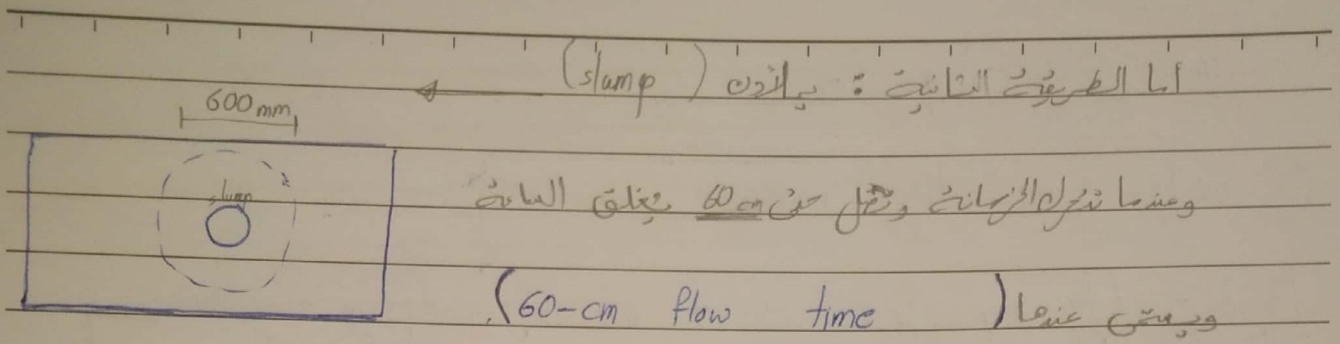 أما الطريقة الثانية : (slump)
600 mm
slump
وعندما تتحرك الخرسانة وتصل حتى 60 cm يغلق الساعة
ويسمى عندها (60-cm flow time).